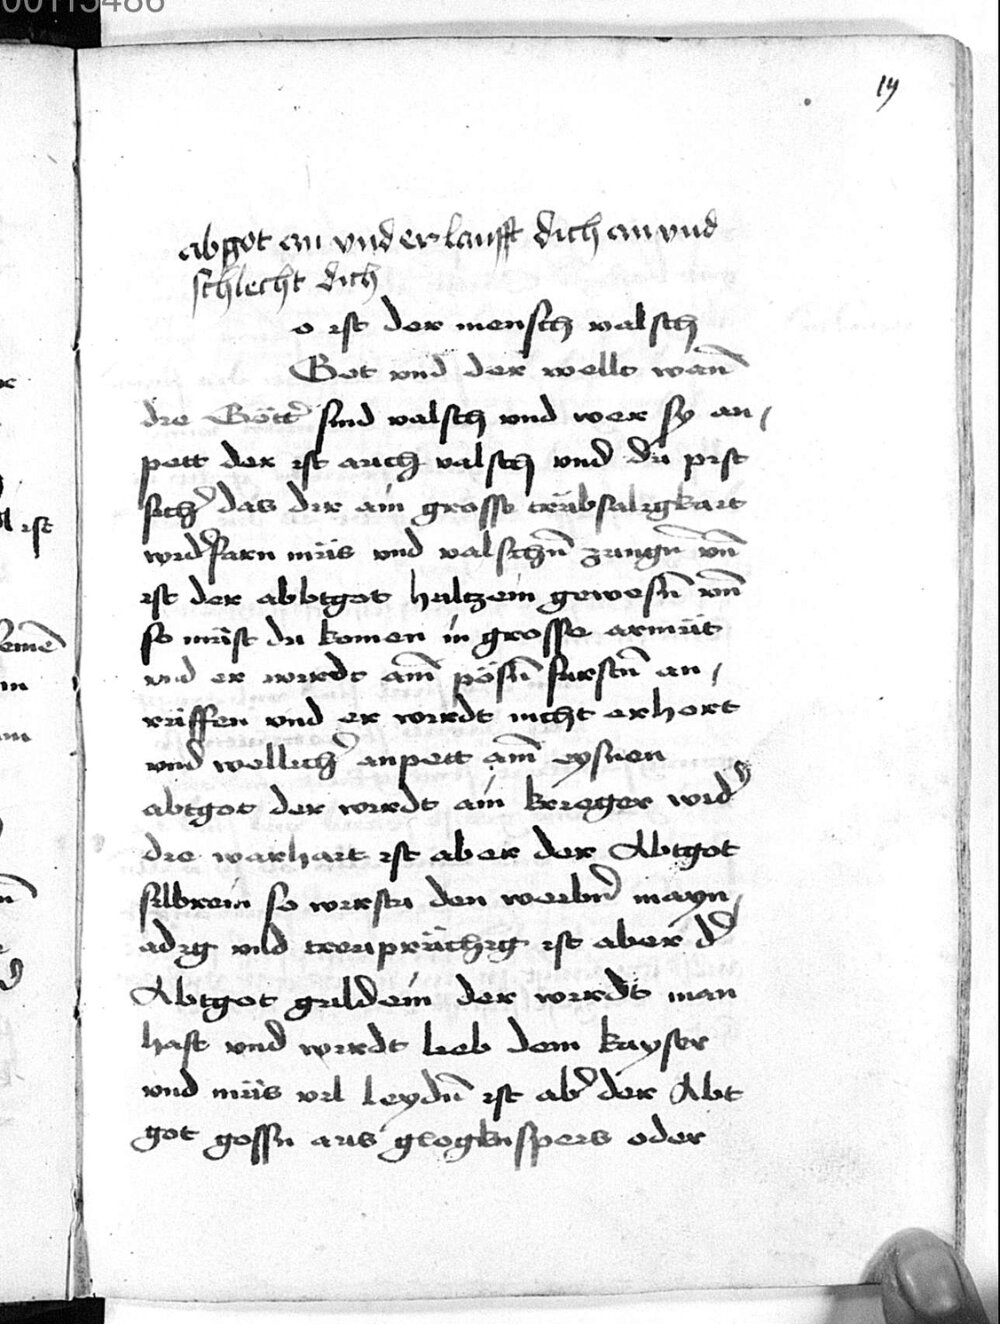 19
abgot an vnd er laufft dich an vnd
schlecht dich
o ist der mensch valsch
Got vnd der wellt wan̄
die Gött͛ sind valsch vnd wer sy an,
pett der ist auch valsch vnd du pist
sich͛ das dir ain grosse trübsaligkait
wid͛farn müs vnd valschn̄ zungn̄ vn̄
ist der abbtgot hültzein gewesn̄ vn̄
so müst du komen in grosse armüt
vnd er wirdt am̄ pösn̄ fürstn̄ an,
rüffen vnd er wirdt nicht erhort
vnd wellich͛ anpett am̄ eysnen
abtgot der wirdt ain krieger wid͛
die warhait ist aber der Abtgot
silbrein so wirstu den weibn̄ mayn,
adig vnd treuprüchig ist aber d͛
Abtgot guldein der wirdt man
hast vnd wirdt lieb dem kayser
vnd müs vil leydn̄ ist ab͛ der Abt
got gossn aus glogknspeis oder
ist